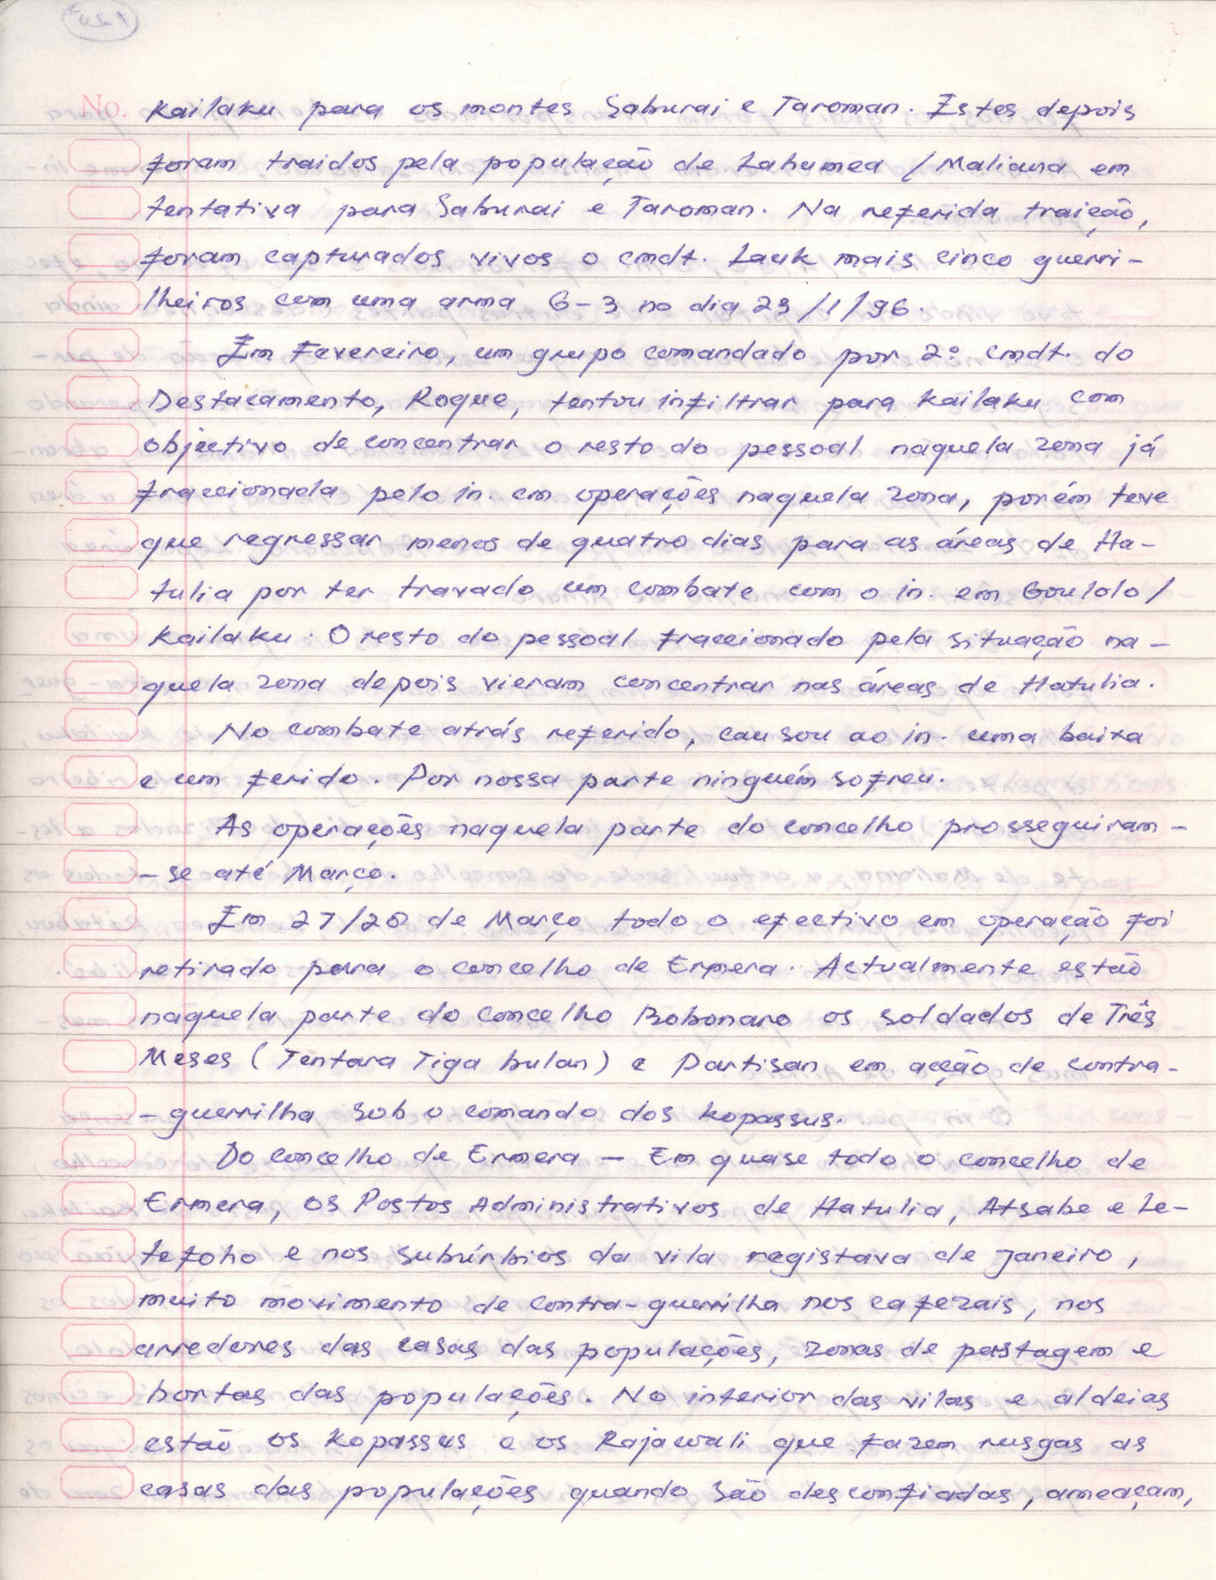 No. Kailaku para os montes Saburai e Taroman. Estes depois
foram traidos pela população de Lahumea / Maliana em
tentativa para Saburai e Taroman. Na referida traição,
foram capturados vivos o cmdt. Lauk mais cinco guerri-
lheiros com uma arma G-3 no dia 29/1/96.
Em Fevereiro, um grupo comandado por 2º cmdt. do
Destacamento, Roque, tentou infiltrar para Kailaku com
objectivo de concentrar o resto do pessoal naquela zona já
fraccionada pelo in. em operações naquela zona, porém teve
que regressar menos de quatro dias para as áreas de Ha-
tulia por ter travado um combate com o in. em Goulolo /
Kailaku. O resto do pessoal fraccionado pela situação na-
quela zona depois vieram concentrar nas áreas de Hatulia.
No combate atrás referido, causou ao in. uma baixa
e um ferido. Por nossa parte ninguém sofreu.
As operações naquela parte do concelho prosseguiram-
-se até Março.
Em 27/28 de Março todo o efectivo em operação foi
retirado para o concelho de Ermera. Actualmente estão
naquela parte do concelho Bobonaro os soldados de Três
Meses (Tentara Tiga bulan) e Partisan em acção de contra-
-guerrilha sob o comando dos kopassus.
Do concelho de Ermera – Em quase todo o concelho de
Ermera, os Postos Administrativos de Hatulia, Atsabe e Le-
tefoho e nos subúrbios da vila registava de Janeiro,
muito movimento de contra-guerrilha nos cafezais, nos
arredores das casas das populações, zonas de pastagem e
hortas das populações. No interior das vilas e aldeias
estão os Kopassus e os Rajawali que fazem rusgas as
casas das populações quando são desconfiadas, ameaçam,